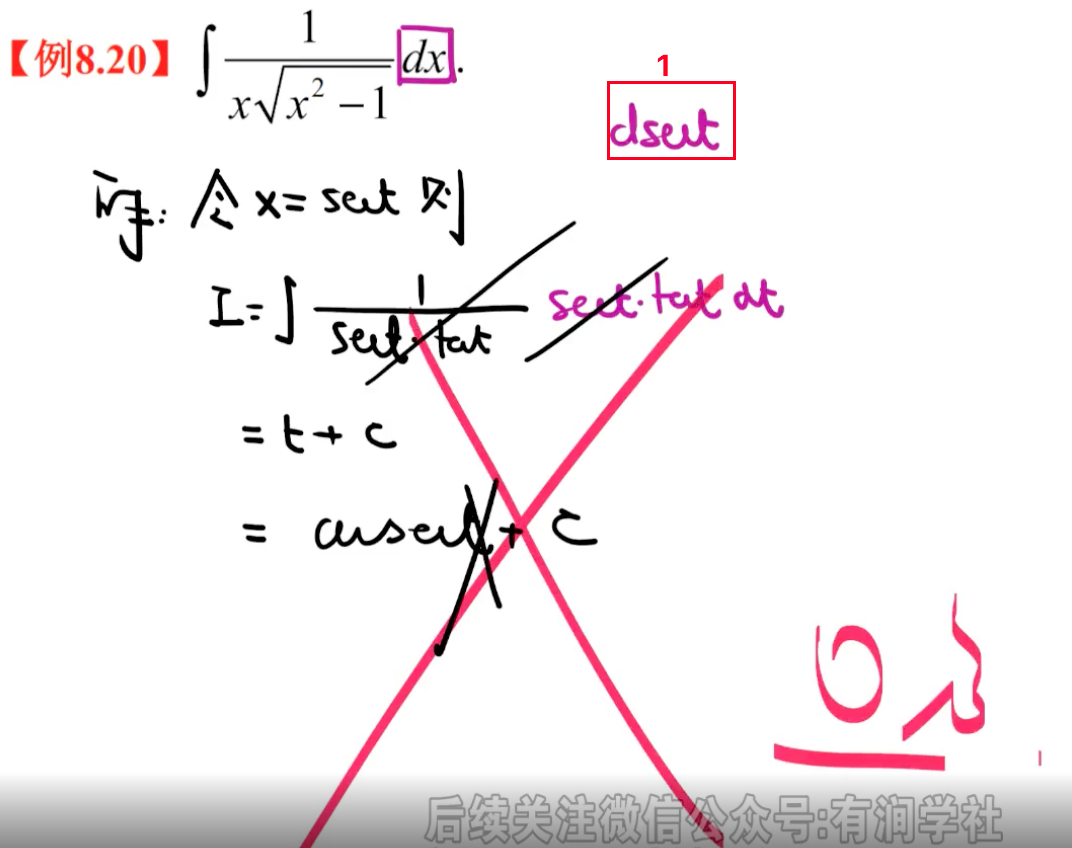 【例8.20】 ∫ 1/(x√(x² − 1)) dx.
1
dsect
解: 令 x = sect 则
I = ∫ 1/(sect · tant) sect · tant dt
= t + C
= arcsecx + C
0分
后续关注微信公众号:有润学社